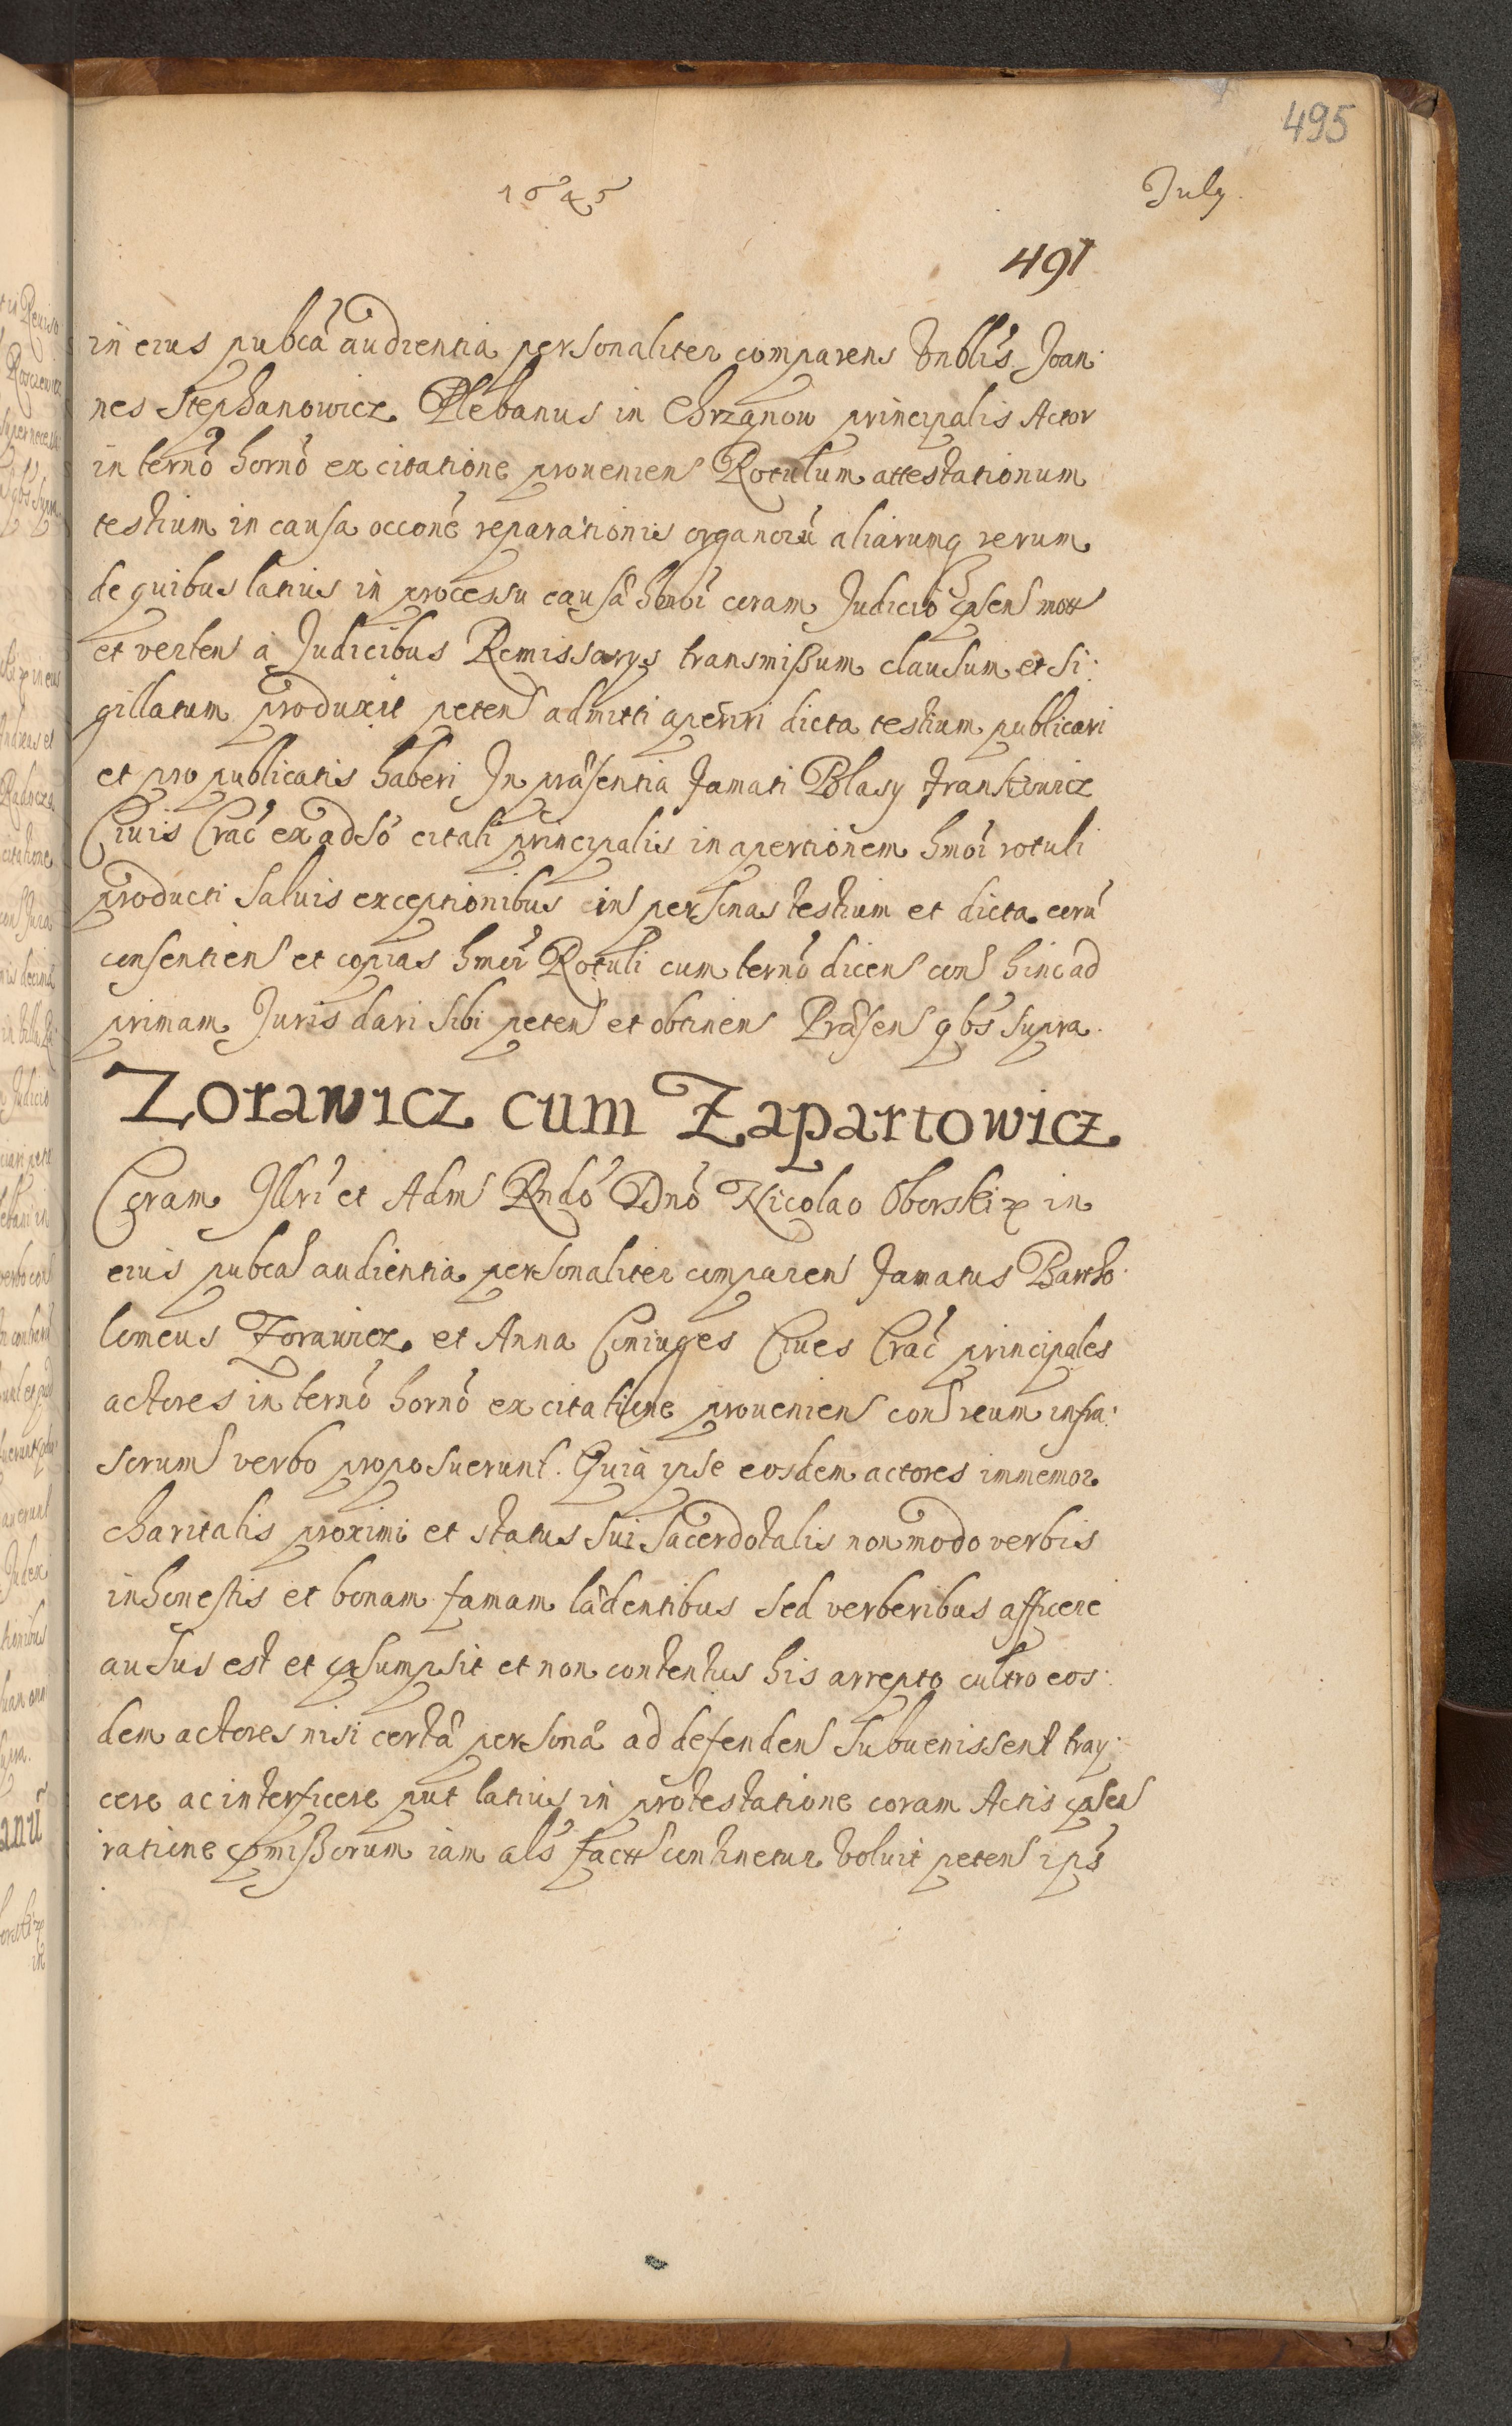 495
1645 July
491
in eius pubcâ audientia personaliter comparens Vnblis Joan:
nes Stephanowicz Plebanus in Chrzanow principalis Actor
in termô hornô ex citatione proueniens Rotulum attestationum
testium in causa occône reparationis organorû aliarumq rerum
de quibus latius in processu causâ hmôi coram Judicio psen mott
et verten a Judicibus Remissarys transmißum clausum et si:
gillatum produxit peten admitti aperiri dicta testium publicari
et pro publicatis haberi In prâsentia famati Blasy Frankowicz
Ciuis Crac̃ ex adsô citati principalis in apertionem hmôi rotuli
producti saluis exceptionibus in personas testium et dicta eorû
consentien et copias hmôi Rotuli cum termô dicen con hinc ad
primam Juris dari sibi peten et obtinen Prâsen qbs supra.
Zorawicz cum Zapartowicz
Coram Illri et Adm Rndô Dnô Nicolao Oborski in
eius pubca audientia personaliter comparen famatus Bartho:
lomeus Zorawicz et Anna Coniuges Ciues Crac̃ principales
actores in termô hornô ex citatione prouenien con reum infra:
scrum verbo proposuerunt. Quia ipse eosdem actores immemor
charitatis proximi et status sui sacerdotalis non modo verbis
inhonestis et bonam famam lâdentibus sed verberibus afficere
ausus est et psumpsit et non contentus his arrepto cultro eos:
dem actores nisi certâ personâ ad defenden subuenissent tray:
cere ac interficere put latius in protestatione coram Actis psen
ratione pmißorum iam als factt continetur voluit peten ips